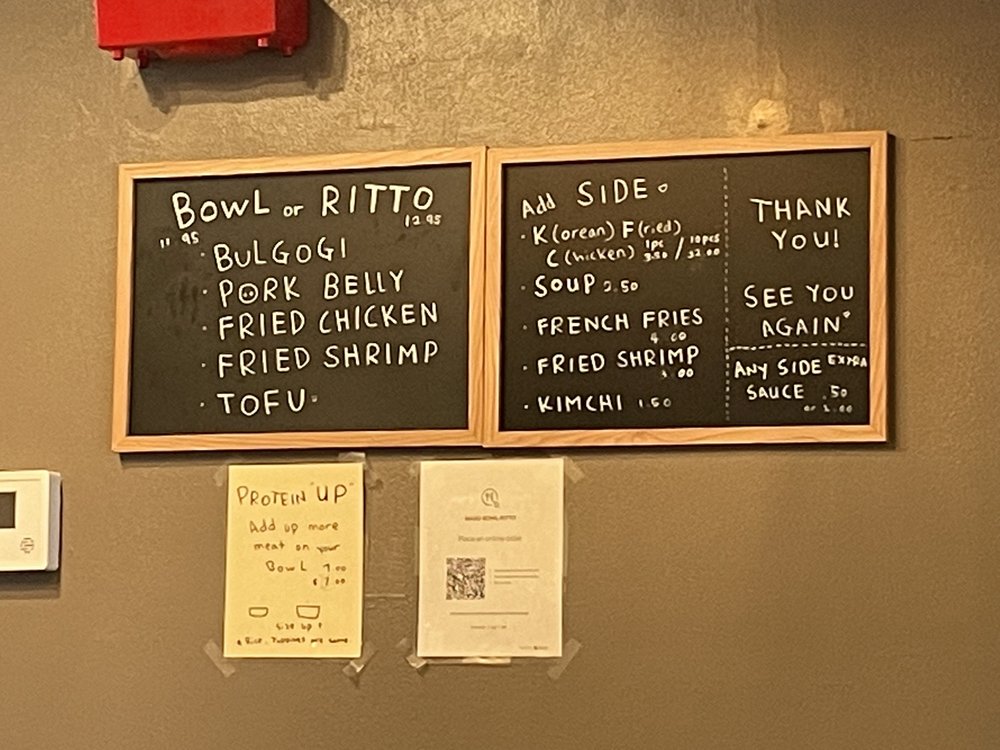 BOWL or RITTO
11 95 12.95
· BULGOGI
· PORK BELLY
· FRIED CHICKEN
· FRIED SHRIMP
· TOFU
Add SIDE
· K(orean) F(ried)
C(hicken) 1pc 3.50 / 10pcs 32.00
· SOUP 2.50
· FRENCH FRIES
· FRIED SHRIMP
· KIMCHI 1.50
THANK
YOU!
SEE YOU
AGAIN
ANY SIDE EXTRA
SAUCE .50
PROTEIN "UP"
Add up more
meat on your
BOWL
Size up
Place an online order